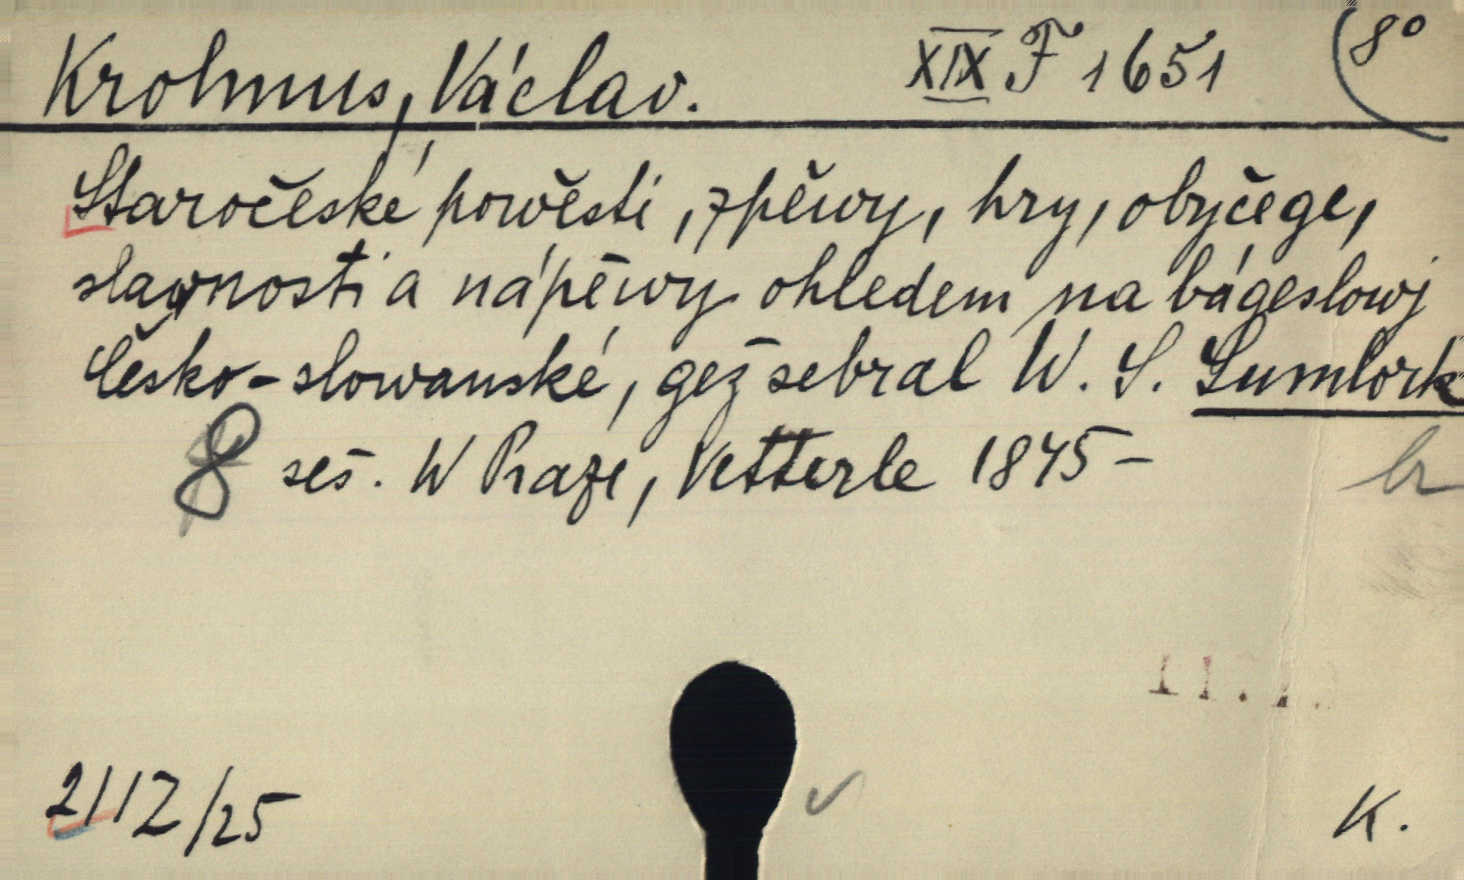 Krolmus, Václav. XIX F 1651 8°
Staročeské powěsti, zpěwy, hry, obyčege,
slavnosti a nápěwy ohledem na bágeslowj
česko-slowanské, gež sebral W. S. Sumlork
8 seš. W Praze, Vetterle 1845 -
2112/25
K.